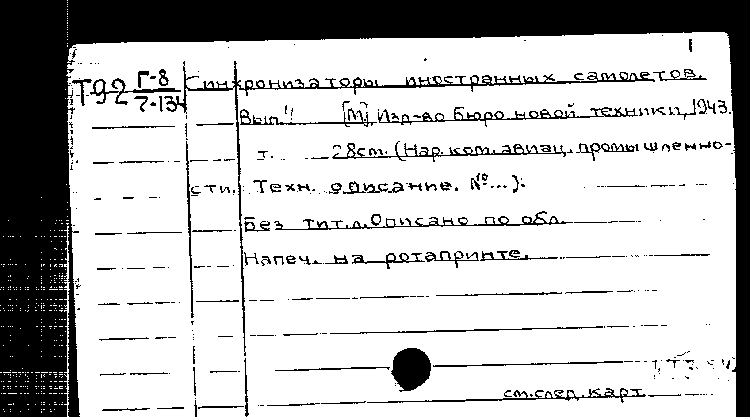 1
Т92 Г-8 Синхронизаторы иностранных самолетов.
7-134
Вып. [М], Изд-во Бюро новой техники, 1943.
т. 28см. (Нар. ком. авиац. промышленно-
сти. Техн. описание. №...).
Без тит.л. Описано по обл.
Напеч. на ротапринте.
см. след. карт.